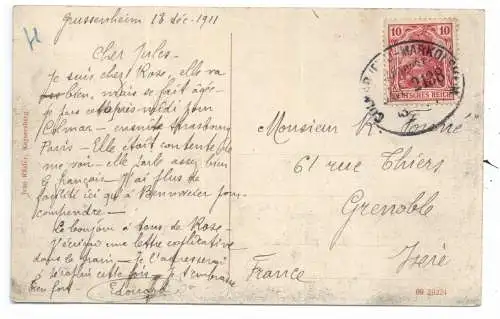 Grussenheim 18 déc. 1911
Cher Jules
Je suis chez Rose, elle va
bien, mais se fait âgée
je pars après midi pour
Colmar - ensuite Strasbourg
Paris - Elle était contente de
me voir - elle parle assez bien
le français - J'ai plus de
facilité ici qu'à Bennwiler pour
comprendre -
Le bonjour à tous de Rose -
J'écrirai une lettre explicative
dans le train - Je l'adresserai
cette fois - Je t'embrasse
bien fort Edouard
Monsieur
61 rue Thiers
Grenoble
Isère
France
10 10
DEUTSCHES REICH
COLMAR MARKOLSHEIM
Jean Kläfle, Kaysersberg
09 29324